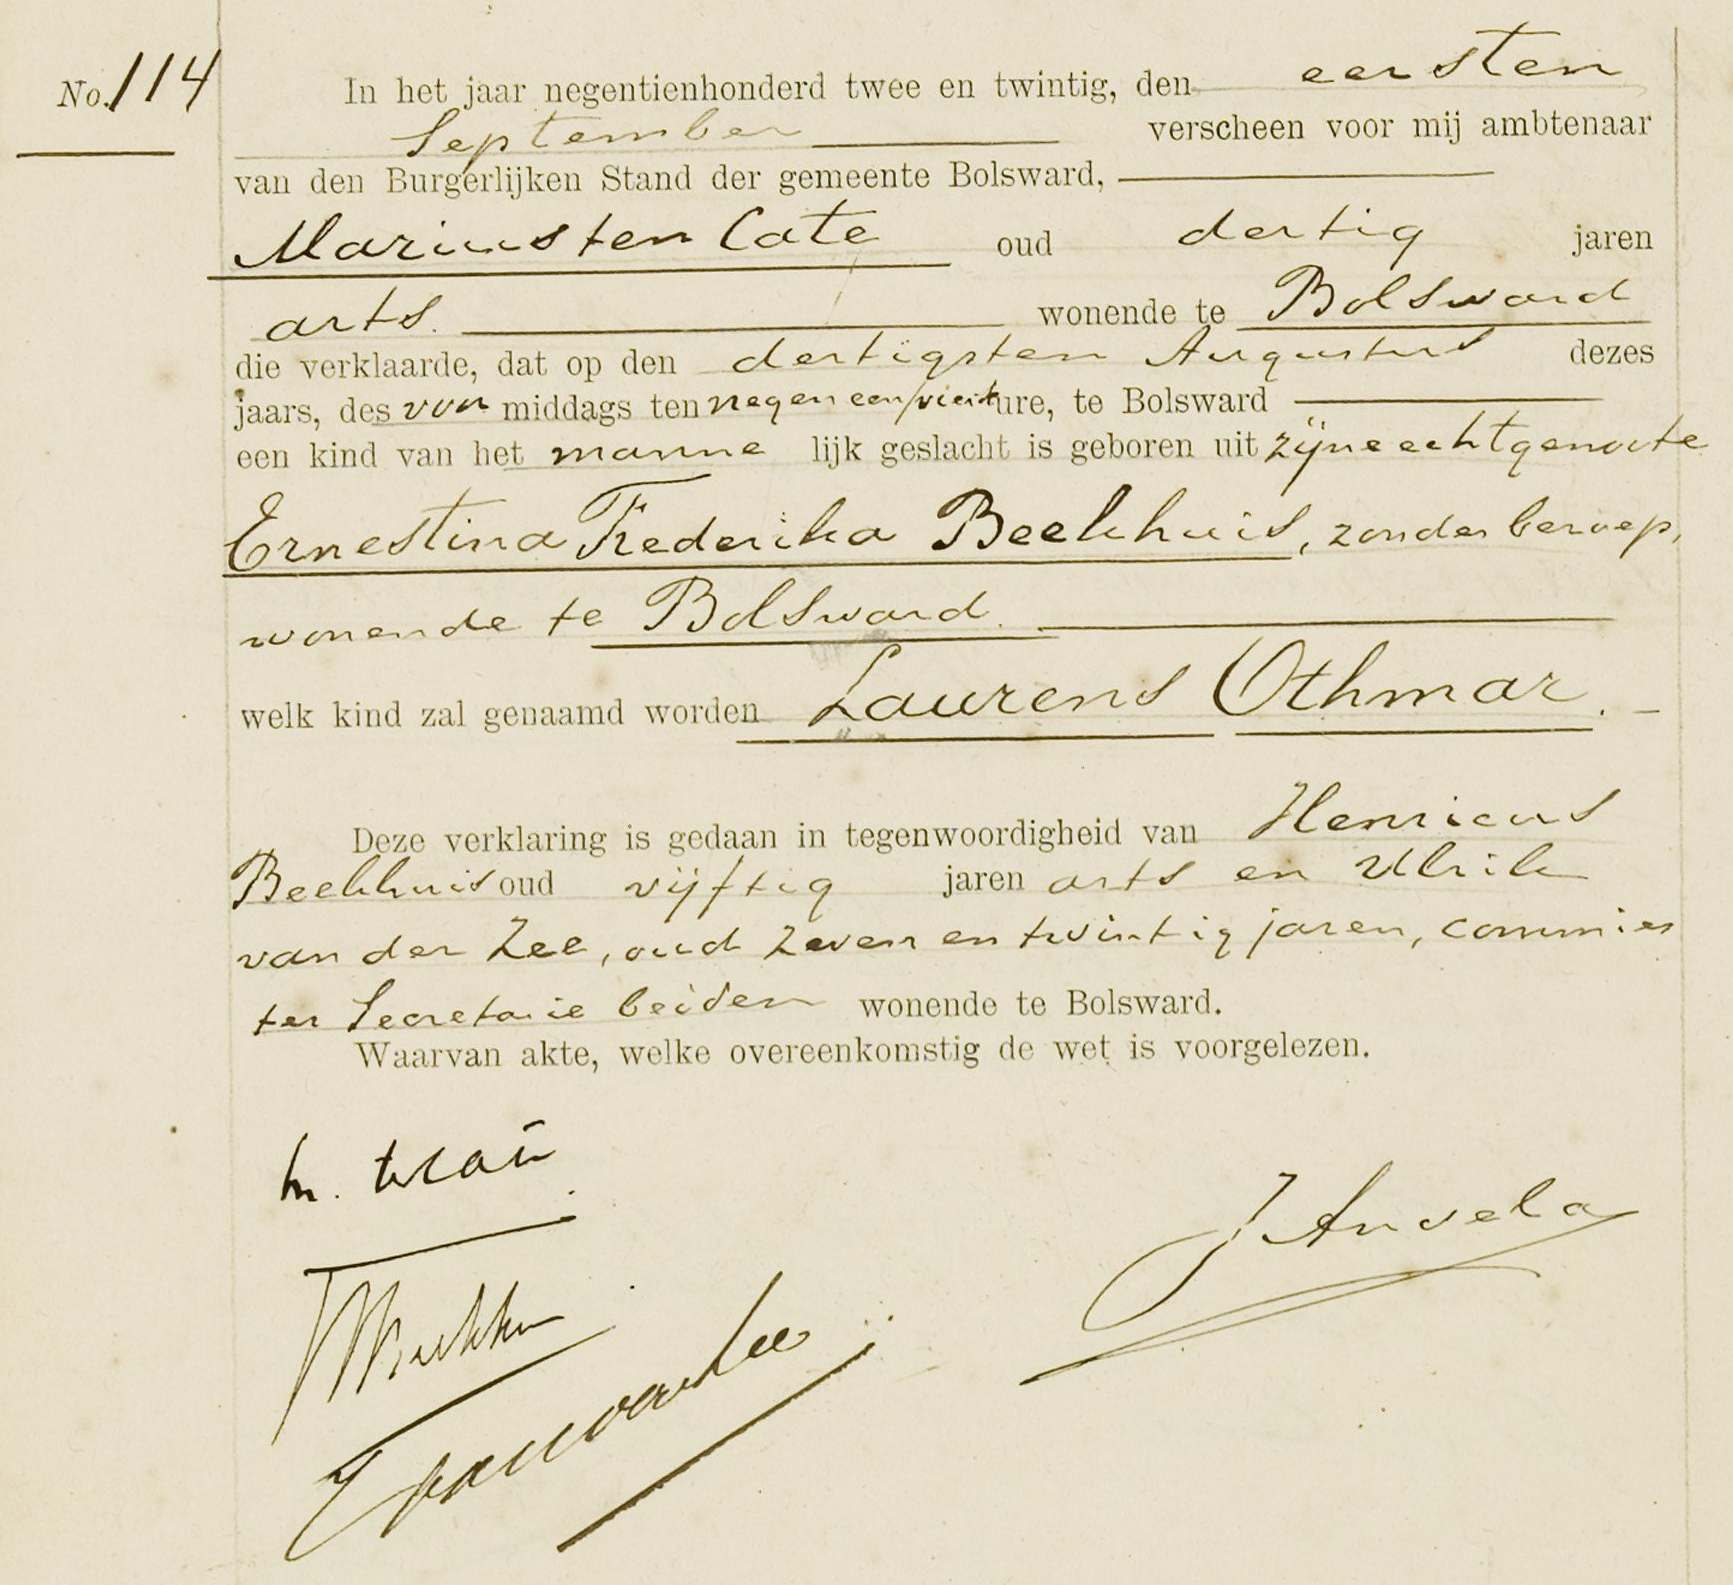 No. 114
In het jaar negentienhonderd twee en twintig, den eersten
September verscheen voor mij ambtenaar
van den Burgerlijken Stand der gemeente Bolsward,
Marius ten Cate oud dertig jaren
arts. wonende te Bolsward
die verklaarde, dat op den dertigsten Augustus dezes
jaars, des voor middags ten negen een/viert ure, te Bolsward
een kind van het manne lijk geslacht is geboren uit zijne echtgenoote
Ernestina Frederika Beekhuis, zonder beroep,
wonende te Bolsward.
welk kind zal genaamd worden Laurens Othmar. -
Deze verklaring is gedaan in tegenwoordigheid van Henricus
Beekhuis oud vijftig jaren arts en Ulrik
van der Zee, oud zeven en twintig jaren, commies
ter Secretarie beiden wonende te Bolsward.
Waarvan akte, welke overeenkomstig de wet is voorgelezen.